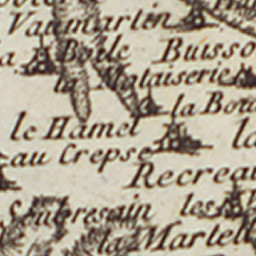 Vaumartin
la Boile Buisso
la Malauserie
la Bou
le Hamel la
au Crepse
Recreau
les
la Martell